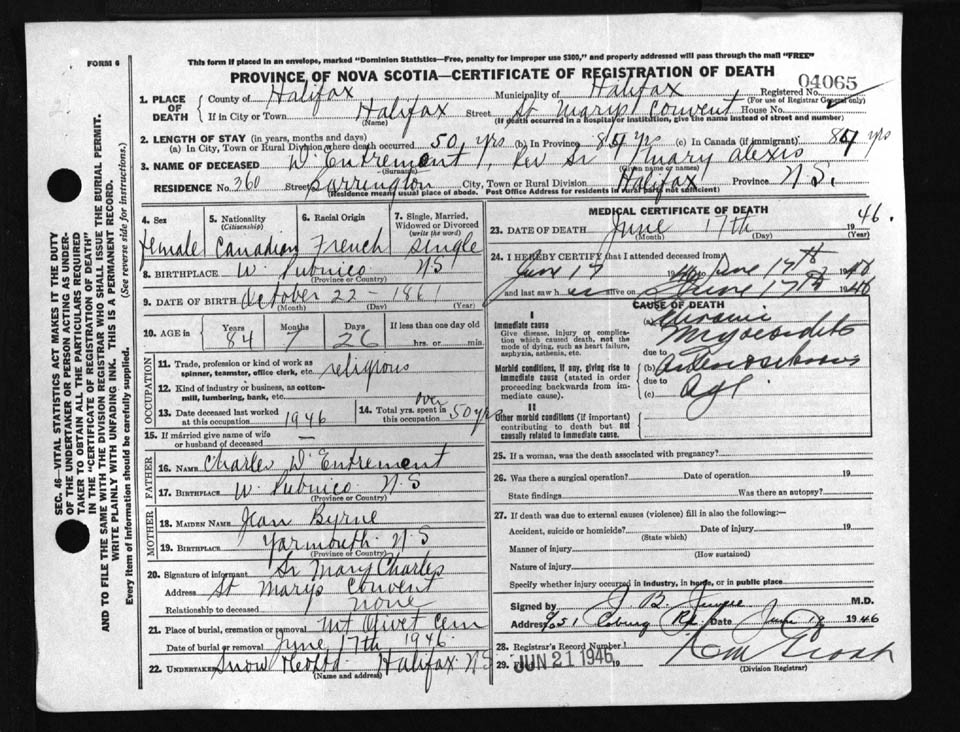 This form if placed in an envelope, marked "Dominion Statistics—Free, penalty for improper use $300," and properly addressed will pass through the mail "FREE"
FORM 6
PROVINCE OF NOVA SCOTIA—CERTIFICATE OF REGISTRATION OF DEATH
04065
1. PLACE OF DEATH
County of Halifax Municipality of Halifax Registered No.
(For use of Registrar General only)
If in City or Town Halifax Street St Marys Convent House No.
(Name) (If death occurred in a hospital or institution, give the name instead of street and number)
2. LENGTH OF STAY (in years, months and days)
(a) In City, Town or Rural Division where death occurred 50 yrs (b) In Province 84 yrs (c) In Canada (if immigrant) 84 yrs
3. NAME OF DECEASED D'Entremont, Rev Sr Mary Alexis
(Surname) (Given name or names)
RESIDENCE No. 360 Street Barrington City, Town or Rural Division Halifax Province N.S.
(Residence means usual place of abode. Post Office Address for residents in rural parts not sufficient)
4. Sex female
5. Nationality (Citizenship) Canadian
6. Racial Origin French
7. Single, Married, Widowed or Divorced (write the word) single
8. BIRTHPLACE W. Pubnico N S
(Province or Country)
9. DATE OF BIRTH October 22 - 1861
(Month) (Day) (Year)
10. AGE in Years 84 Months 7 Days 26 If less than one day old hrs. or min.
OCCUPATION
11. Trade, profession or kind of work as spinner, teamster, office clerk, etc. religious
12. Kind of industry or business, as cotton-mill, lumbering, bank, etc.
13. Date deceased last worked at this occupation 1946
14. Total yrs. spent in this occupation over 50 yrs
15. If married give name of wife or husband of deceased —
FATHER
16. NAME Charles D'Entremont
17. BIRTHPLACE W. Pubnico N S
(Province or Country)
MOTHER
18. MAIDEN NAME Jean Byrne
19. BIRTHPLACE Yarmouth N S
(Province or Country)
20. Signature of informant Sr Mary Charles
Address St Marys Convent
Relationship to deceased none
21. Place of burial, cremation or removal Mt Olivet Cem
Date of burial or removal June 17th 1946
22. UNDERTAKER Snow Halifax N S
(Name and address)
MEDICAL CERTIFICATE OF DEATH
23. DATE OF DEATH June 17th 46.
(Month) (Day) (Year)
24. I HEREBY CERTIFY that I attended deceased from
June 17 1946 to June 17th 1946
and last saw her alive on June 17th 1946
CAUSE OF DEATH
I
Immediate cause
Give disease, injury or complication which caused death, not the mode of dying, such as heart failure, asphyxia, asthenia, etc.
(a) Chronic Myocarditis
due to
Morbid conditions, if any, giving rise to immediate cause (stated in order proceeding backwards from immediate cause).
(b) arteriosclerosis
due to
(c) age
II
Other morbid conditions (if important) contributing to death but not causally related to immediate cause.
25. If a woman, was the death associated with pregnancy?
26. Was there a surgical operation? Date of operation 19
State findings Was there an autopsy?
27. If death was due to external causes (violence) fill in also the following:—
Accident, suicide or homicide? Date of injury 19
(State which)
Manner of injury
(How sustained)
Nature of injury
Specify whether injury occurred in industry, in home, or in public place
Signed by J. B. M.D.
Address 51 Coburg Rd. Date June 18 1946
28. Registrar's Record Number 1
29. Filed JUN 21 1946 19
(Division Registrar)
SEC. 46—VITAL STATISTICS ACT MAKES IT THE DUTY
OF THE UNDERTAKER OR PERSON ACTING AS UNDER-
TAKER TO OBTAIN ALL THE PARTICULARS REQUIRED
IN THE "CERTIFICATE OF REGISTRATION OF DEATH"
AND TO FILE THE SAME WITH THE DIVISION REGISTRAR WHO SHALL ISSUE THE BURIAL PERMIT.
WRITE PLAINLY WITH UNFADING INK. THIS IS A PERMANENT RECORD.
Every item of Information should be carefully supplied. (See reverse side for instructions.)